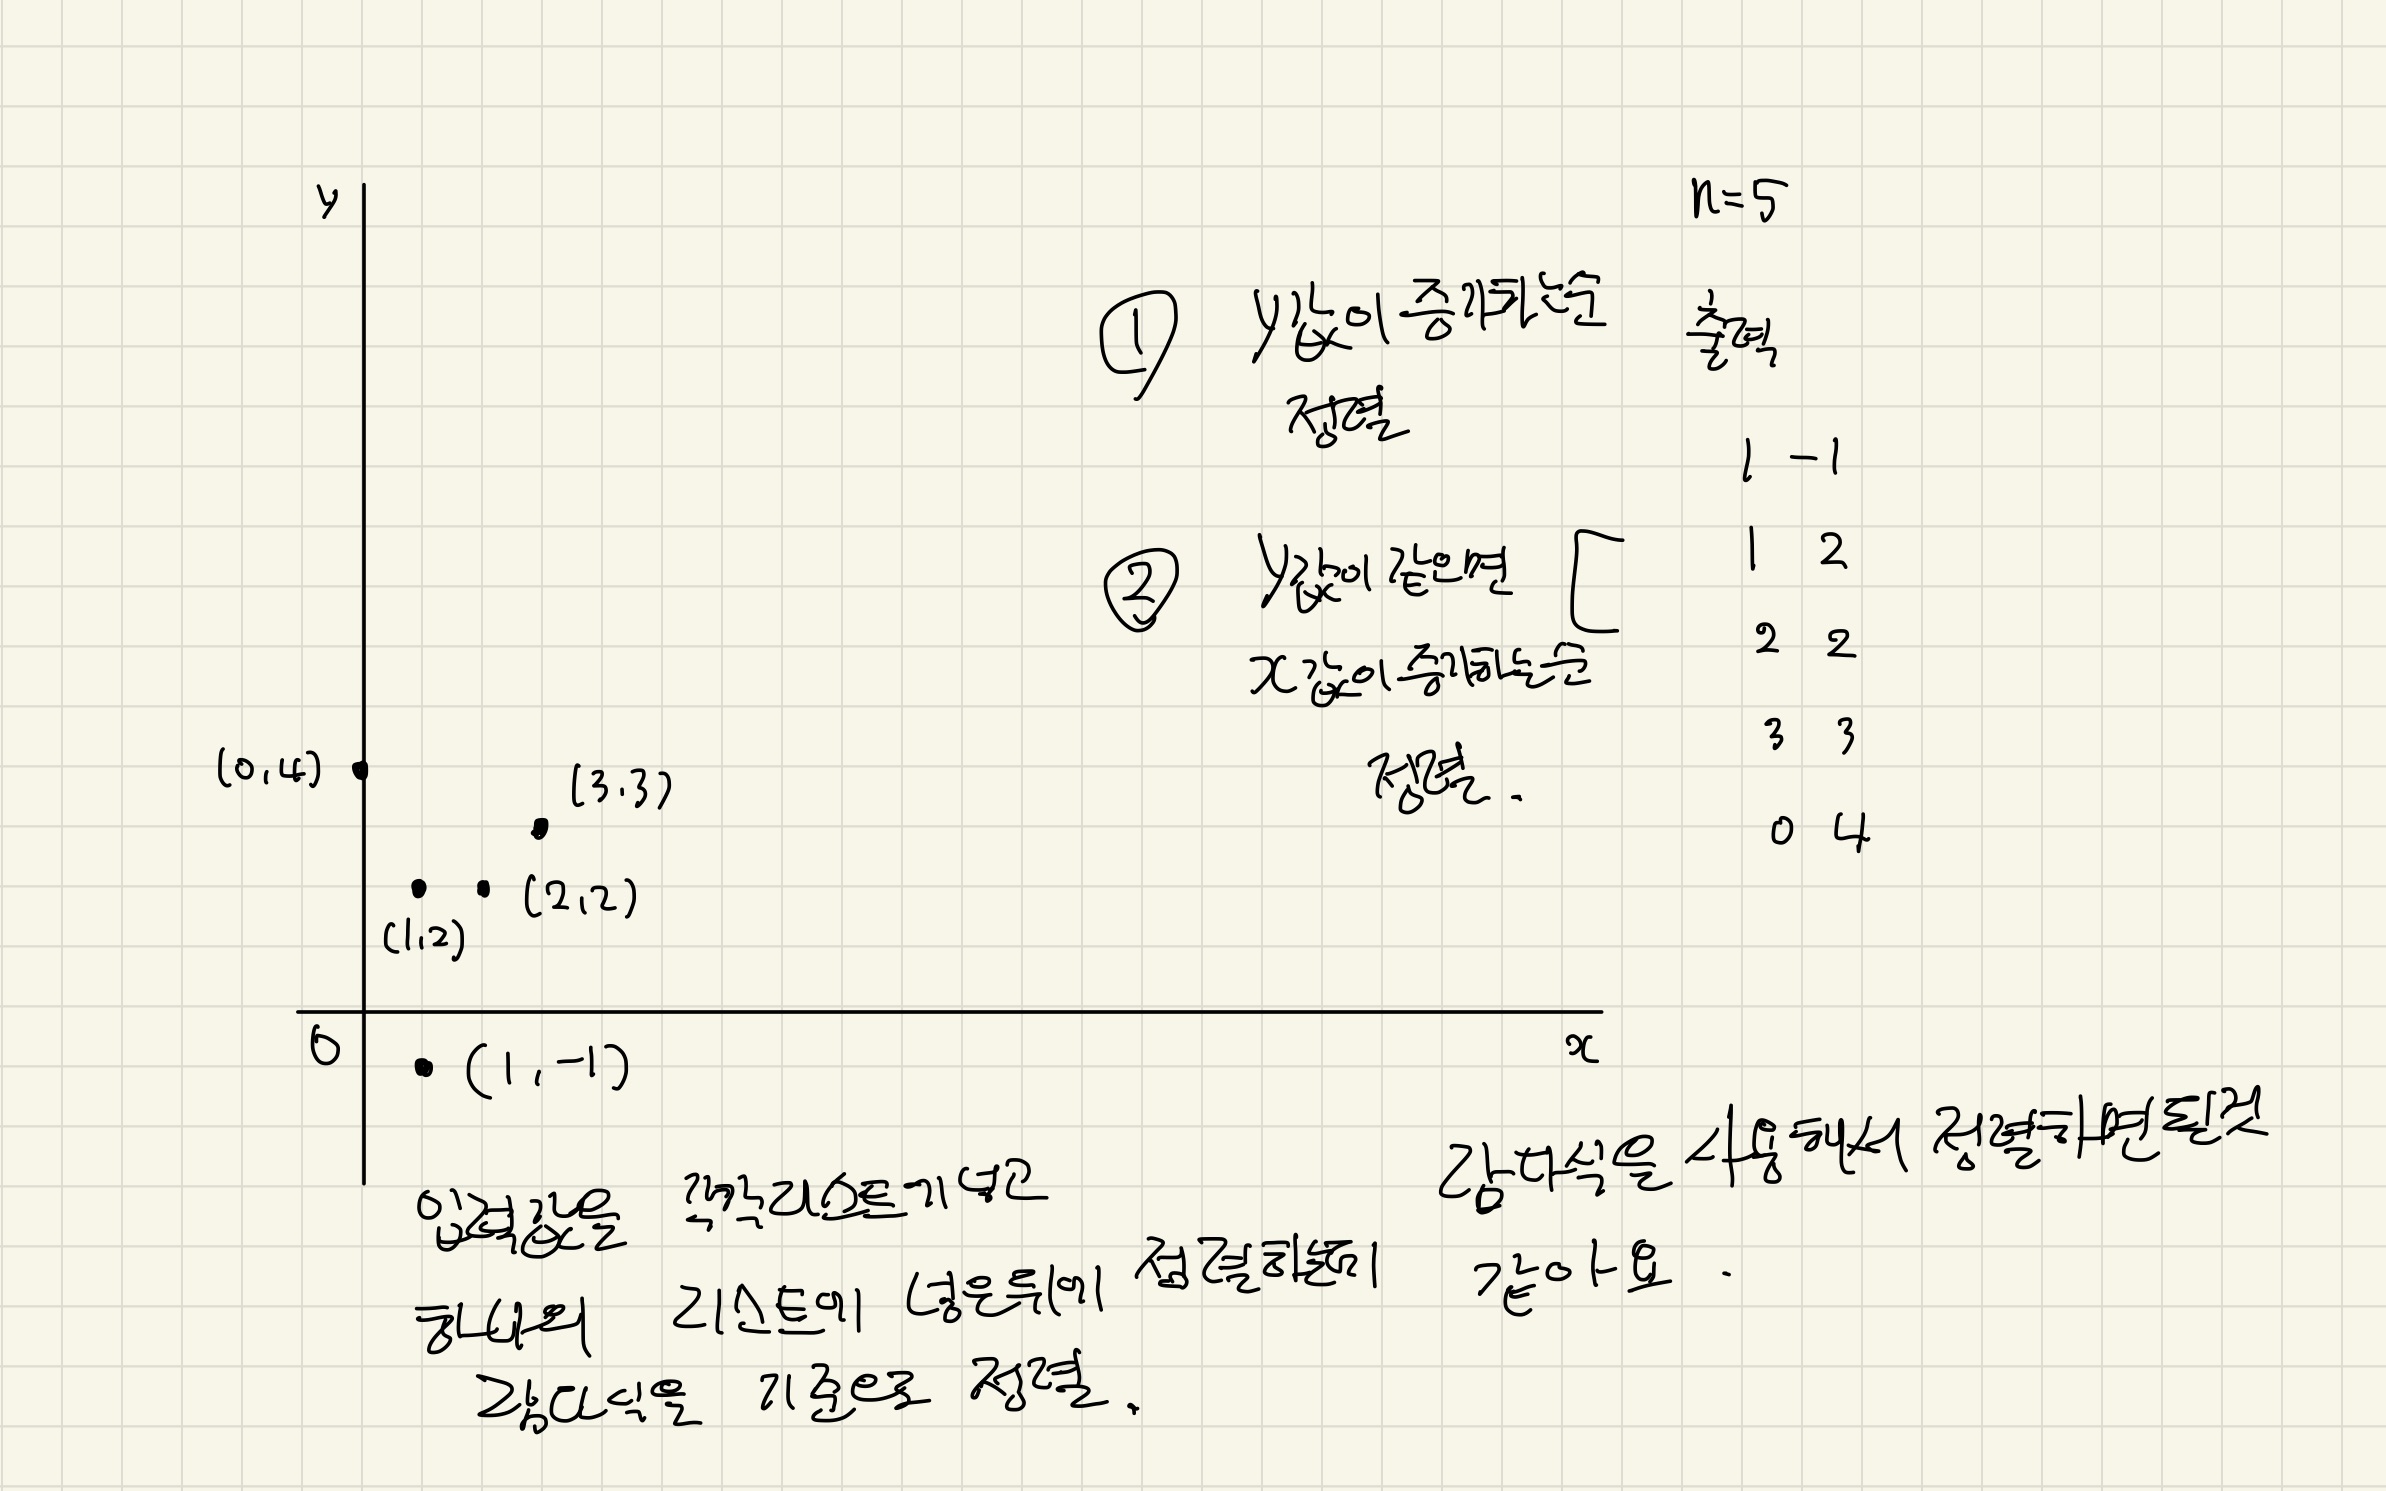 y
n=5
① y값이 증가하는순
정렬
출력
1 -1
1 2
2 2
3 3
0 4
② y값이 같으면
x값이 증가하는순
정렬.
(0,4)
(3,3)
(1,2)
(2,2)
0
x
(1,-1)
입력값을 각각 리스트기 넣고
하나의 리스트에 넣은뒤에 정렬하는데
람다식을 기준으로 정렬.
람다식을 사용해서 정렬하면될것
같아요.